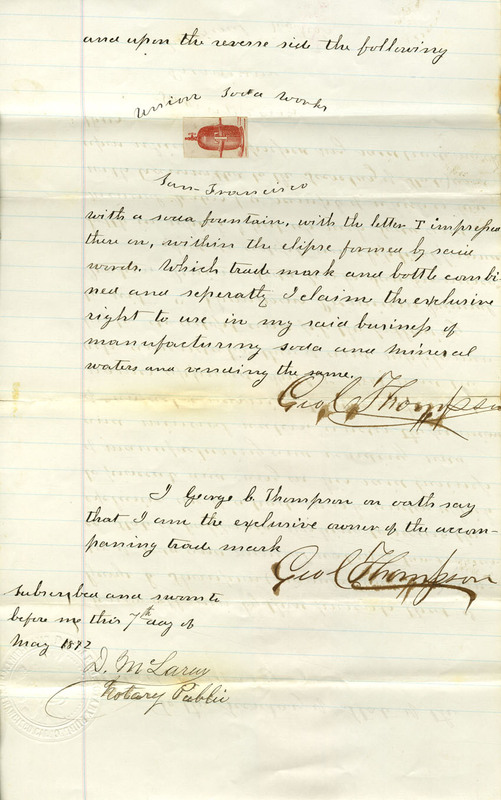 and upon the reverse side the following
Union Soda Works
San Francisco
with a soda fountain, with the letter T impressed
there on, within the elipse formed by said
words. Which trade mark and bottle combi
ned and seperatly I claim the exclusive
right to use in my said business of
manufacturing soda and mineral
waters and vending the same.
Geo C Thompson
I George C. Thompson on oath say
that I am the exclusive owner of the accom-
paning trade mark
Geo C Thompson
Subscribed and sworn to
before me this 7th day of
May 1872
D. McLaren
Notary Public